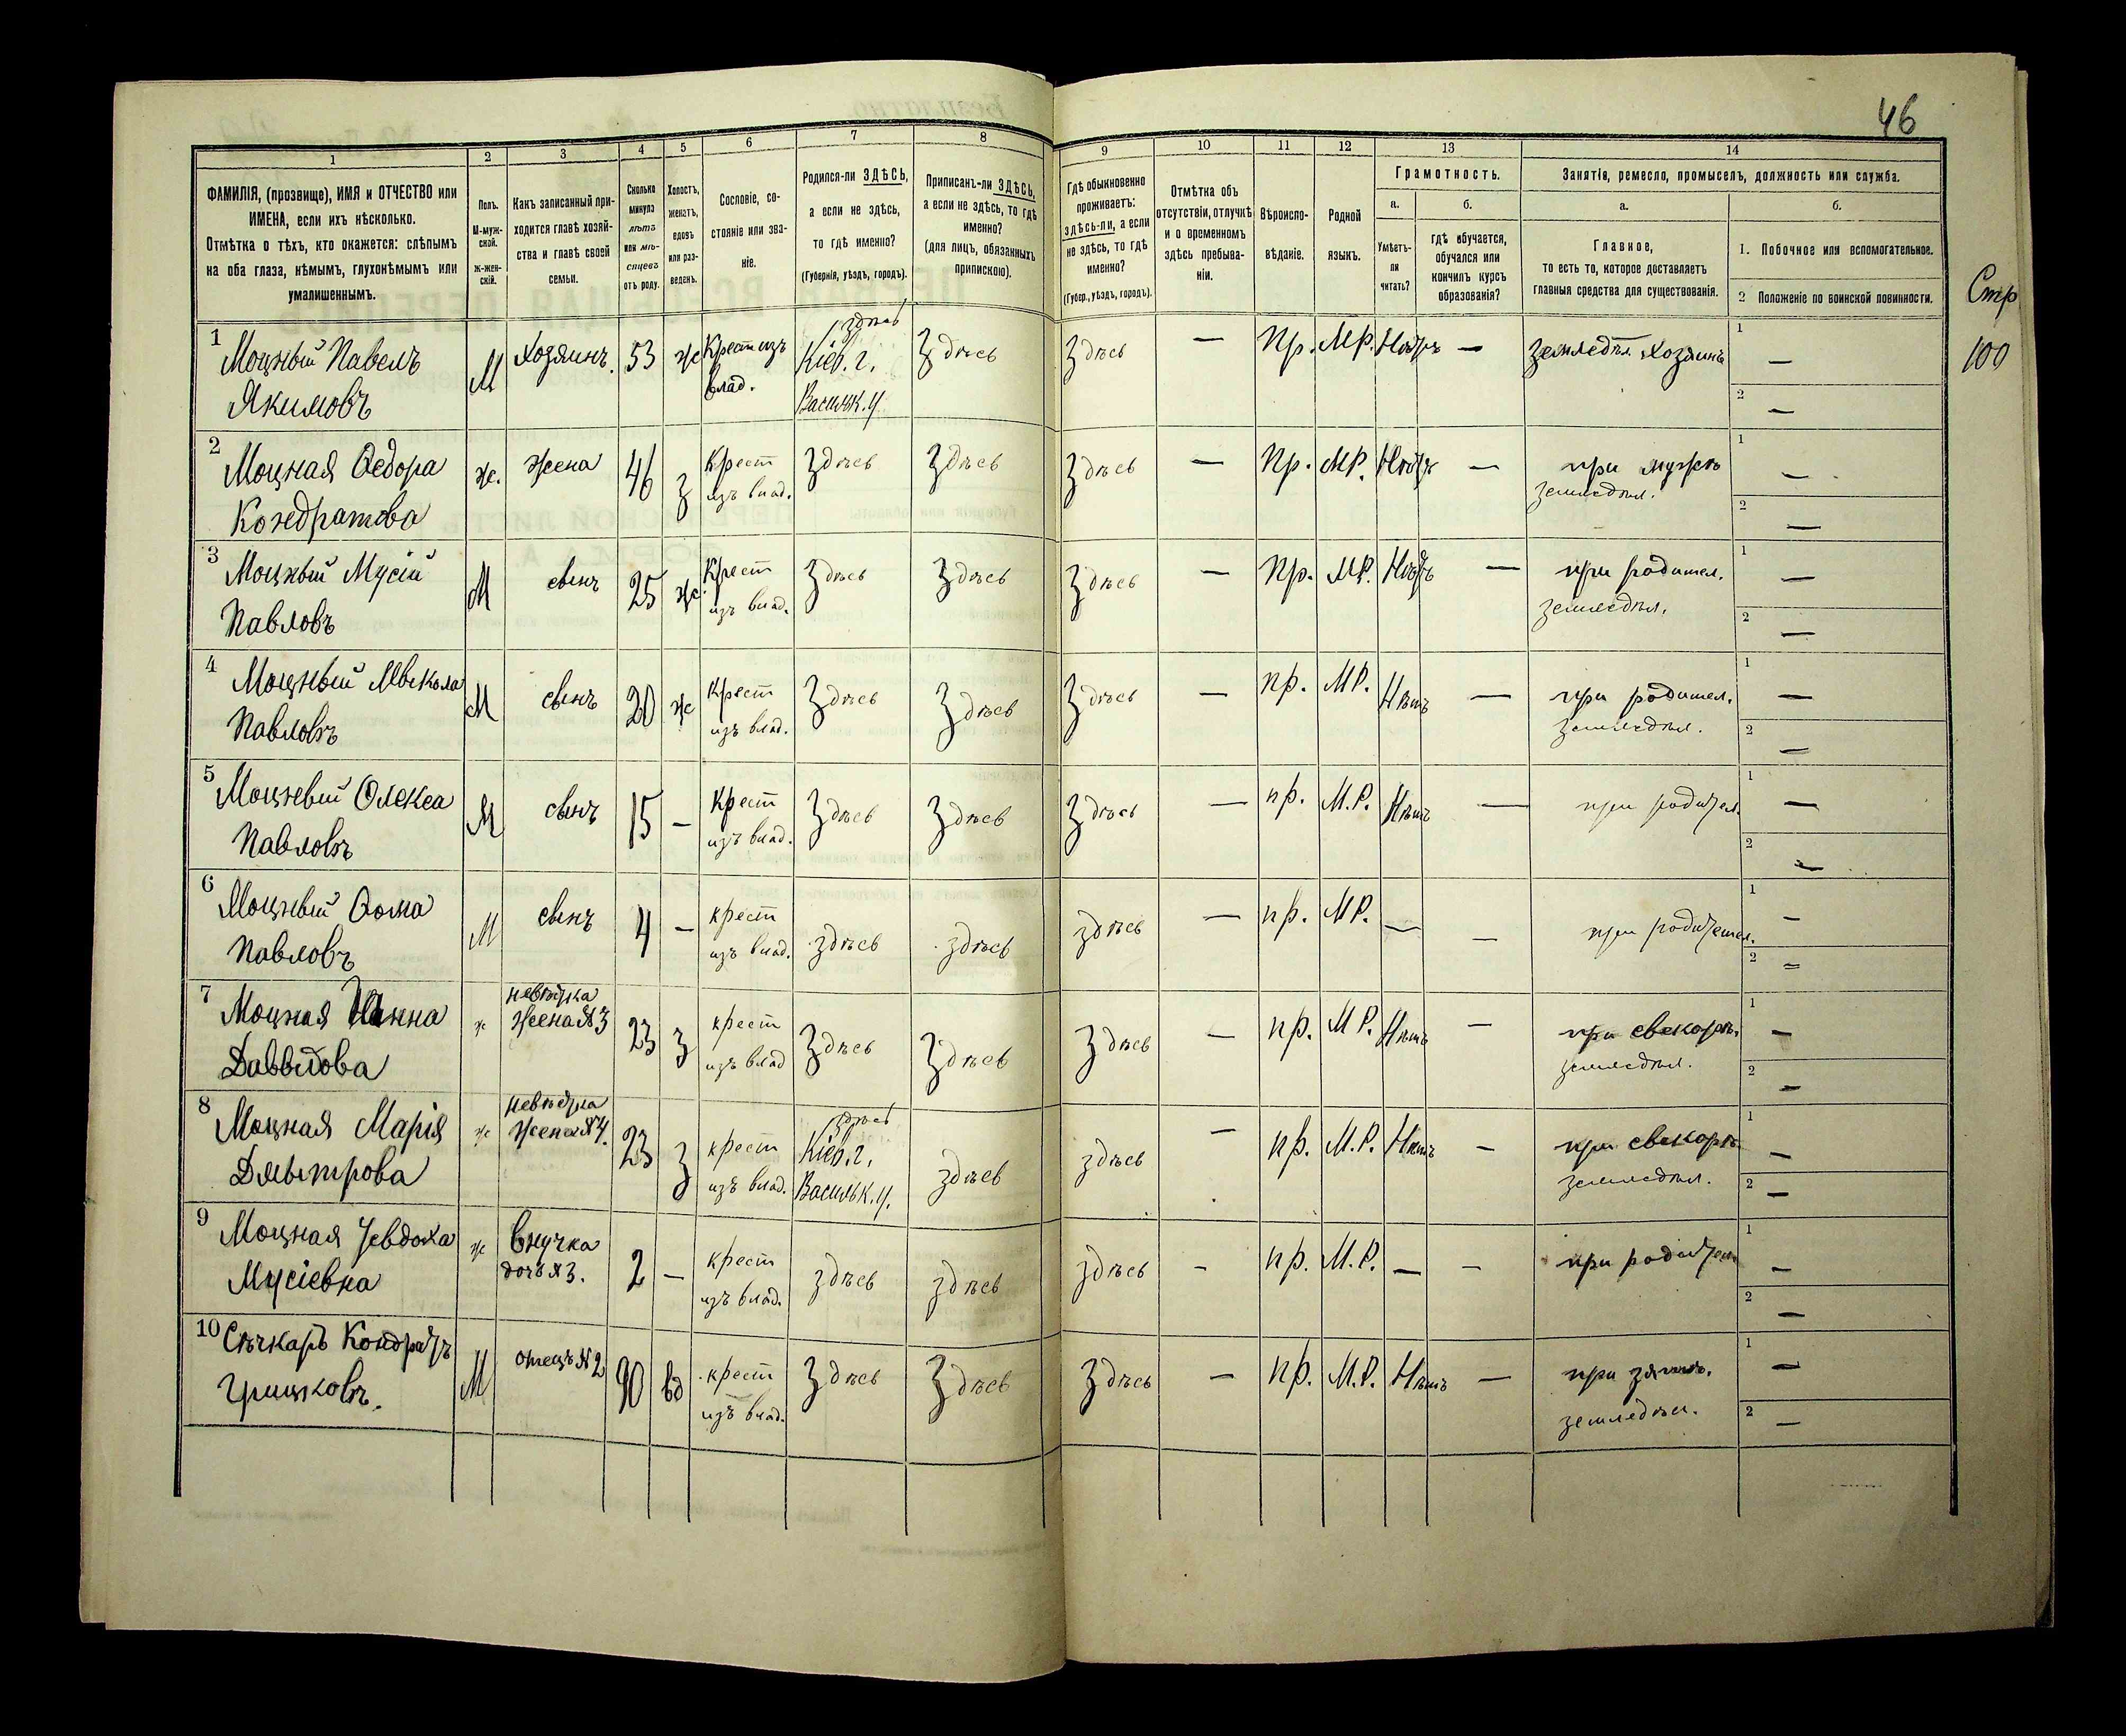 46
1 2 3 4 5 6 7 8 9 10 11 12 13 14
ФАМИЛІЯ, (прозвище), ИМЯ и ОТЧЕСТВО или
ИМЕНА, если ихъ нѣсколько.
Отмѣтка о тѣхъ, кто окажется: слѣпымъ
на оба глаза, нѣмымъ, глухонѣмымъ или
умалишеннымъ.
Полъ.
М-муж-
ской.
Ж-жен-
скій.
Какъ записанный при-
ходится главѣ хозяй-
ства и главѣ своей
семьи.
Сколько
минуло
лѣтъ
или мѣ-
сяцевъ
отъ роду.
Холостъ,
женатъ,
вдовъ
или раз-
веденъ.
Сословіе, со-
стояніе или зва-
ніе.
Родился-ли ЗДѢСЬ,
а если не здѣсь,
то гдѣ именно?
(Губернія, уѣздъ, городъ).
Приписанъ-ли ЗДѢСЬ,
а если не здѣсь, то гдѣ
именно?
(для лицъ, обязанныхъ
припискою).
Гдѣ обыкновенно
проживаетъ:
здѣсь-ли, а если
не здѣсь, то гдѣ
именно?
(Губер., уѣздъ, городъ).
Отмѣтка объ
отсутствіи, отлучкѣ
и о временномъ
здѣсь пребыва-
ніи.
Вѣроиспо-
вѣданіе.
Родной
языкъ.
Грамотность.
а.
Умѣетъ-
ли
читать?
б.
гдѣ обучается,
обучался или
кончилъ курсъ
образованія?
Занятія, ремесло, промыселъ, должность или служба.
а.
Главное,
то есть то, которое доставляетъ
главныя средства для существованія.
б.
1. Побочное или вспомогательное.
2 Положеніе по воинской повинности.
Стр
100
1 Моцный Павелъ М Хозяинъ. 53 ж Крест изъ здѣсь Кіев. г. Здѣсь Здѣсь — Пр. МР. Нѣтъ — земледѣл. хозяинъ 1 —
Якимовъ влад. Васильк. у. 2 —
2 Моцная Ѳедора ж. жена 46 з Крест Здѣсь Здѣсь Здѣсь — Пр. МР. Нѣтъ — при мужѣ 1 —
Кондратова изъ влад. земледѣл. 2 —
3 Моцный Мусій М сынъ 25 ж. Крест Здѣсь Здѣсь Здѣсь — Пр. МР. Нѣтъ — при родител. 1 —
Павловъ изъ влад. земледѣл. 2 —
4 Моцный Мыкола М сынъ 20 ж крест Здѣсь Здѣсь Здѣсь — пр. МР. Нѣтъ — при родител. 1 —
Павловъ изъ влад. земледѣл. 2 —
5 Моцный Олекса М сынъ 15 — крест Здѣсь Здѣсь Здѣсь — пр. М.Р. Нѣтъ — при родител. 1 —
Павловъ изъ влад. 2 —
6 Моцный Ѳома М сынъ 4 — крест здѣсь здѣсь здѣсь — пр. МР. — — при родител. 1 —
Павловъ изъ влад. 2 —
7 Моцная Ганна ж невѣстка жена №3 23 з крест Здѣсь Здѣсь Здѣсь — пр. МР. Нѣтъ — при свекорѣ. 1 —
Давыдова изъ влад земледѣл. 2 —
8 Моцная Марія ж невѣстка жена №4. 23 з крест здѣсь Кіев. г. здѣсь здѣсь — пр. М.Р. Нѣтъ — при свекорѣ 1 —
Дмытрова изъ влад. Васильк. у. земледѣл. 2 —
9 Моцная Уевдоха ж Внучка 2 — крест здѣсь здѣсь здѣсь — пр. М.Р. — — при родител 1 —
Мусіевна дочь №3. изъ влад. 2 —
10 Сѣчкарь Кондратъ М отецъ №2 90 вд крест Здѣсь Здѣсь Здѣсь — пр. М.Р. Нѣтъ — при зятѣ. 1 —
Грицковъ. изъ влад. земледѣл. 2 —